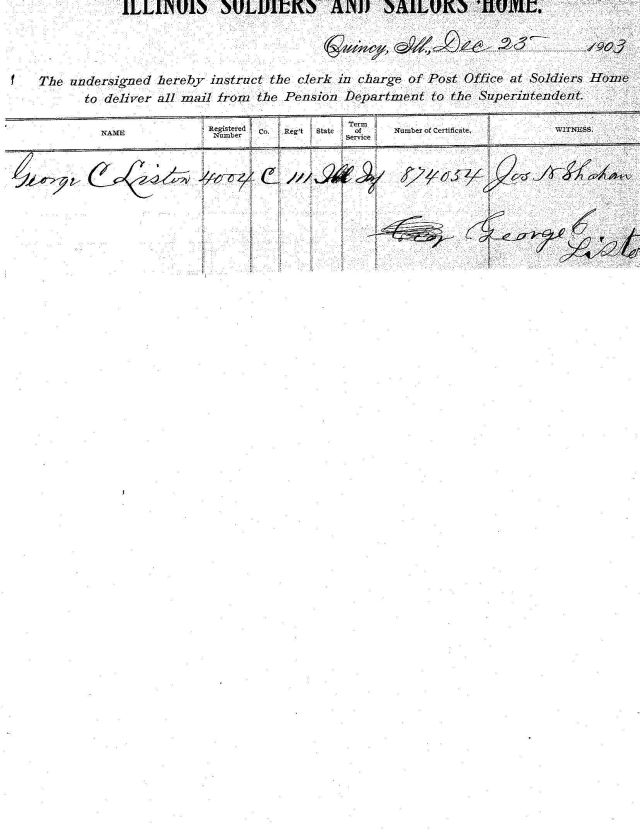 ILLINOIS SOLDIERS AND SAILORS HOME.
Quincy, Ill., Dec 23 1903
The undersigned hereby instruct the clerk in charge of Post Office at Soldiers Home
to deliver all mail from the Pension Department to the Superintendent.
NAME Registered Number Co. Reg't State Term of Service Number of Certificate, WITNESS.
George C Liston 4004 C 111 Ill Inf 874054 Jos Shahan
George C
Listo